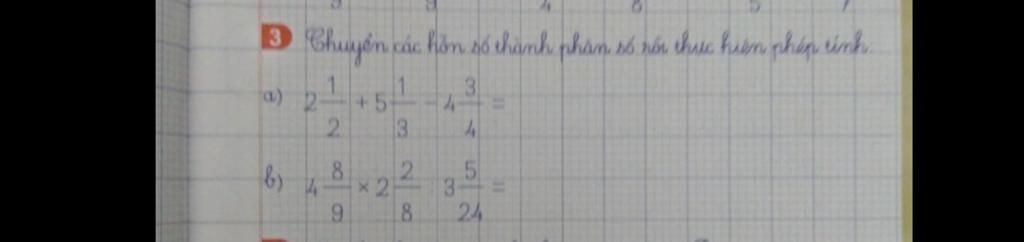 3 Chuyển các hỗn số thành phân số rồi thực hiện phép tính.
a) 2 1/2 + 5 1/3 - 4 3/4 =
b) 4 8/9 × 2 2/8 : 3 5/24 =